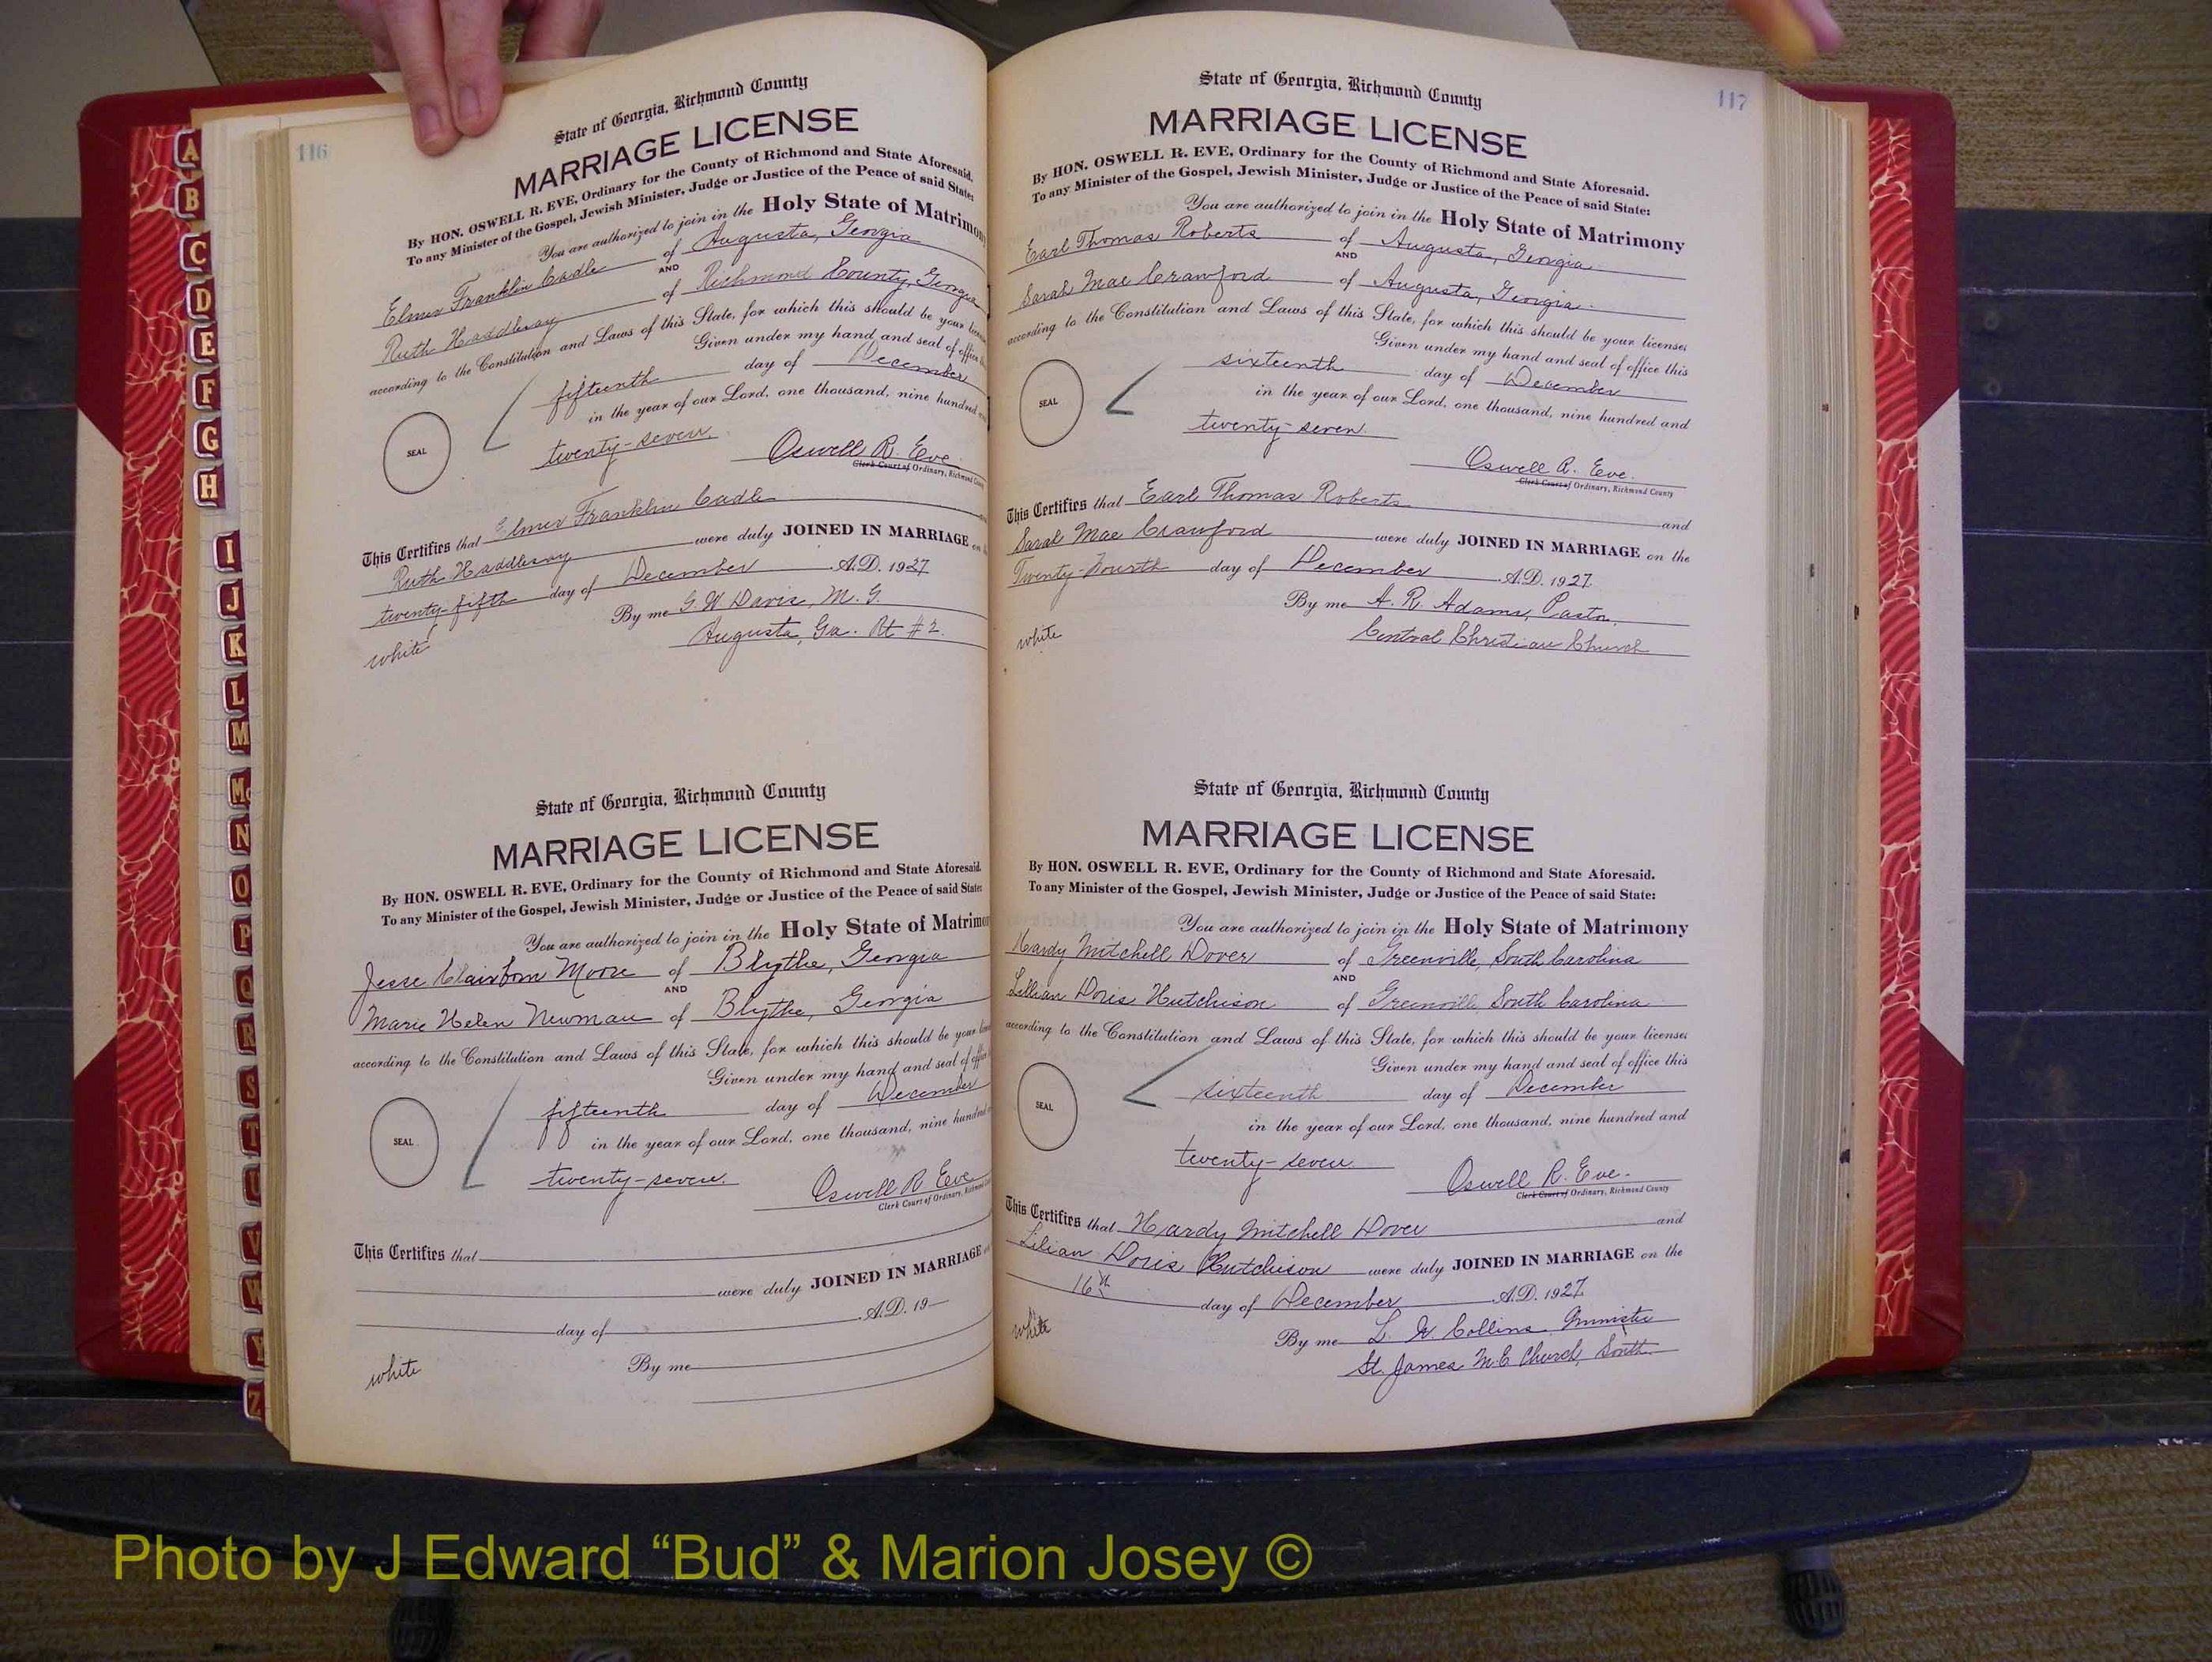 116
State of Georgia, Richmond County
MARRIAGE LICENSE
By HON. OSWELL R. EVE, Ordinary for the County of Richmond and State Aforesaid.
To any Minister of the Gospel, Jewish Minister, Judge or Justice of the Peace of said State:
You are authorized to join in the Holy State of Matrimony
Elmer Franklin Cadle of Augusta, Georgia
AND
Ruth Haddleway of Richmond County, Georgia
according to the Constitution and Laws of this State, for which this should be your
Given under my hand and seal of office
fifteenth day of December
in the year of our Lord, one thousand, nine hundred
SEAL
twenty-seven.
Oswell R. Eve
Clerk Court of Ordinary, Richmond
This Certifies that Elmer Franklin Cadle
Ruth Haddleway were duly JOINED IN MARRIAGE on
twenty-fifth day of December A.D. 1927
By me G. W Davis, M. G.
Augusta, Ga. Rt #2.
white
State of Georgia, Richmond County
MARRIAGE LICENSE
By HON. OSWELL R. EVE, Ordinary for the County of Richmond and State Aforesaid.
To any Minister of the Gospel, Jewish Minister, Judge or Justice of the Peace of said State:
You are authorized to join in the Holy State of Matrimon
Jesse Clairborn Moore of Blythe, Georgia
AND
Marie Helen Newman of Blythe, Georgia
according to the Constitution and Laws of this State, for which this should be your
Given under my hand and seal of office
fifteenth day of December
in the year of our Lord, one thousand, nine hundred
SEAL
twenty-seven.
Oswell R. Eve
Clerk Court of Ordinary, Richmond
This Certifies that
were duly JOINED IN MARRIAGE
day of A.D. 19
By me
white
117
State of Georgia, Richmond County
MARRIAGE LICENSE
By HON. OSWELL R. EVE, Ordinary for the County of Richmond and State Aforesaid.
To any Minister of the Gospel, Jewish Minister, Judge or Justice of the Peace of said State:
You are authorized to join in the Holy State of Matrimony
Earl Thomas Roberts of Augusta, Georgia
AND
Sarah Mae Crawford of Augusta, Georgia.
according to the Constitution and Laws of this State, for which this should be your license;
Given under my hand and seal of office this
sixteenth day of December
in the year of our Lord, one thousand, nine hundred and
SEAL
twenty-seven
Oswell R. Eve.
Clerk Court of Ordinary, Richmond County
This Certifies that Earl Thomas Roberts and
Sarah Mae Crawford were duly JOINED IN MARRIAGE on the
Twenty-Fourth day of December A.D. 1927.
By me A. R. Adams, Pastor,
Central Christian Church
white
State of Georgia, Richmond County
MARRIAGE LICENSE
By HON. OSWELL R. EVE, Ordinary for the County of Richmond and State Aforesaid.
To any Minister of the Gospel, Jewish Minister, Judge or Justice of the Peace of said State:
You are authorized to join in the Holy State of Matrimony
Hardy Mitchell Dover of Greenville, South Carolina
AND
Lillian Doris Hutchison of Greenville, South Carolina
according to the Constitution and Laws of this State, for which this should be your license;
Given under my hand and seal of office this
sixteenth day of December
in the year of our Lord, one thousand, nine hundred and
SEAL
twenty-seven
Oswell R. Eve.
Clerk Court of Ordinary, Richmond County
This Certifies that Hardy Mitchell Dover and
Lilian Doris Hutchison were duly JOINED IN MARRIAGE on the
16th day of December A.D. 1927
By me L. W Collins Minister
St. James M.E Church, South
white
A
B
C
D
E
F
G
H
I
J
K
L
M
Mc
N
O
P
Q
R
S
T
U
V
W
Y
Z
Photo by J Edward “Bud” & Marion Josey ©